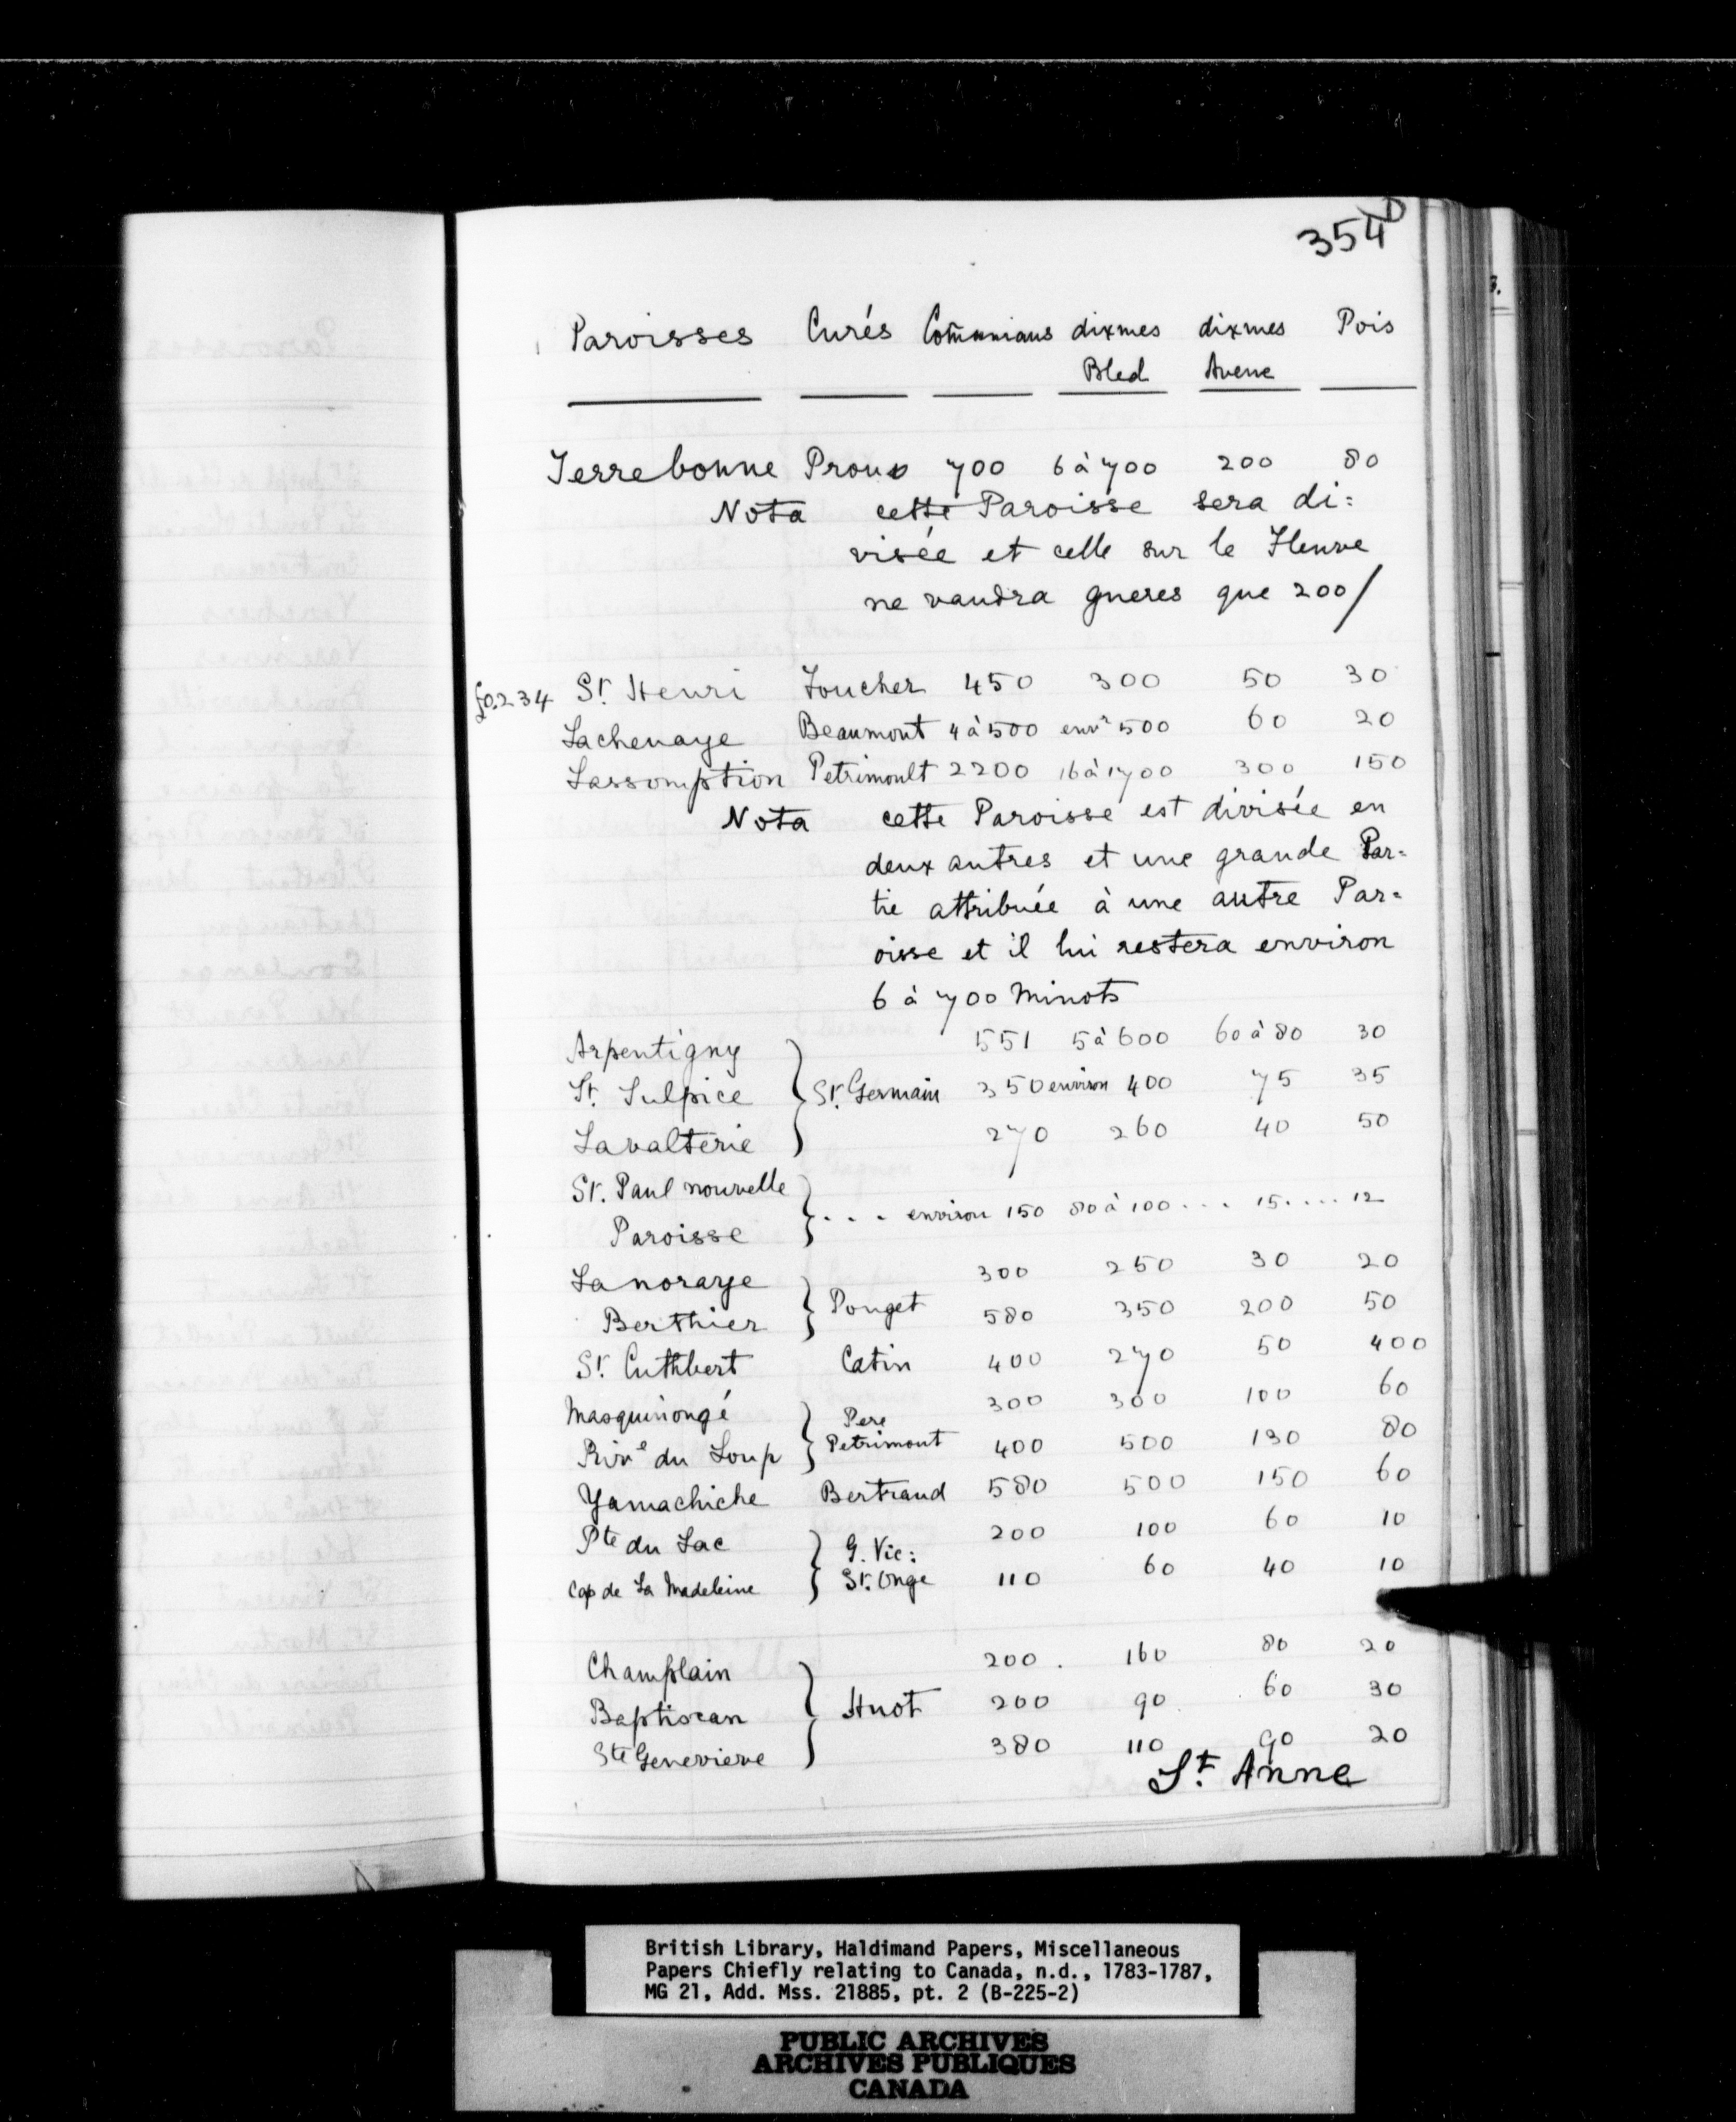 354 D
Paroisses Curés Com̃unians dixmes dixmes Pois
Bled Avene
Terrebonne Proux 700 6 à 700 200 80
Nota cette Paroisse sera di=
visée et celle sur le Fleuve
ne vaudra gueres que 200/
fo.234 St. Henri Foucher 450 300 50 30
Lachenaye Beaumont 4 à 500 envn 500 60 20
Lassomption Petrimoult 2200 16 à 1700 300 150
Nota cette Paroisse est divisée en
deux autres et une grande Par=
tie attribuée à une autre Par=
oisse et il lui restera environ
6 à 700 Minots
Arpentigny 551 5 à 600 60 à 80 30
St. Sulpice St. Germain 350 environ 400 75 35
Lavalterie 270 260 40 50
St. Paul nouvelle
Paroisse . . . environ 150 80 à 100 . . . 15 . . . . 12
Lanoraye 300 250 30 20
Berthier Pouget 580 350 200 50
St. Cuthbert Catin 400 270 50 400
Masquinongé 300 300 100 60
Rive du Loup Pere Petrimont 400 500 130 80
Yamachiche Bertrand 580 500 150 60
Pte du Lac G. Vic: 200 100 60 10
Cap de La Madeleine St. Onge 110 60 40 10
Champlain 200 . 160 80 20
Baptiscan Huot 200 90 60 30
Ste Genevieve 380 110 90 20
St. Anne
British Library, Haldimand Papers, Miscellaneous
Papers Chiefly relating to Canada, n.d., 1783-1787,
MG 21, Add. Mss. 21885, pt. 2 (B-225-2)
PUBLIC ARCHIVES
ARCHIVES PUBLIQUES
CANADA